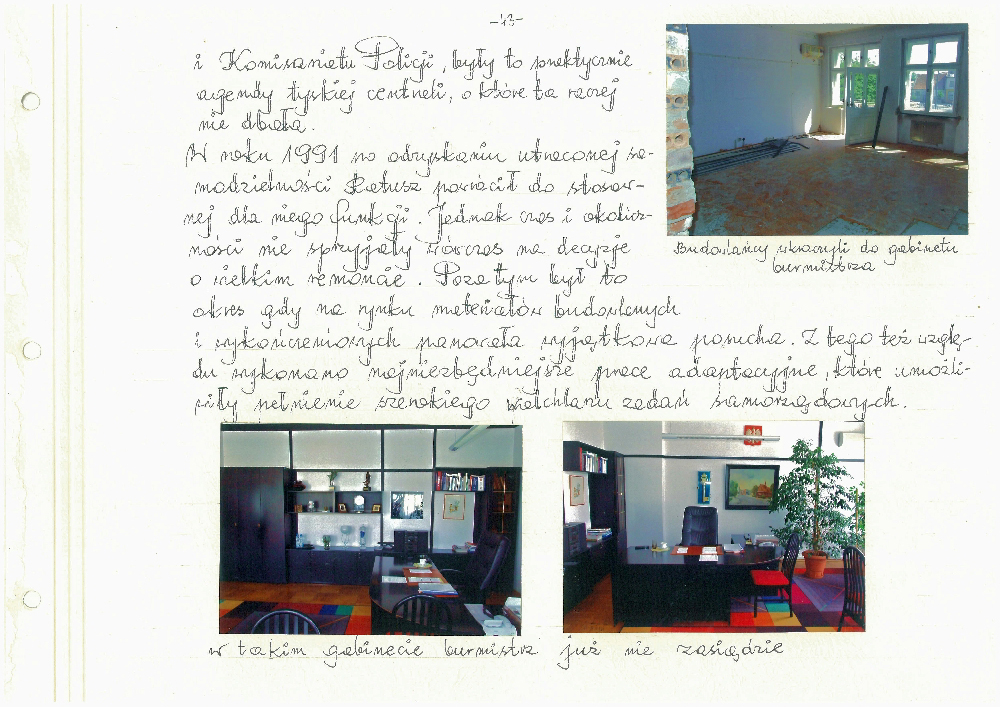 -43-
i Komisariatu Policji, były to praktycznie
agendy tyskiej centrali, o które ta raczej
nie dbała.
W roku 1991 po odzyskaniu utraconej sa-
modzielności Ratusz powrócił do stosow-
nej dla niego funkcji. Jednak czas i okolicz-
ności nie sprzyjały wówczas na decyzje
o wielkim remoncie. Poza tym był to
okres gdy na rynku materiałów budowlanych
i wykończeniowych panowała wyjątkowa posucha. Z tego też wzglę-
du wykonano najniezbędniejsze prace adaptacyjne, które umożli-
wiły pełnienie szerokiego wachlarza zadań samorządowych.
Budowlańcy wkroczyli do gabinetu
burmistrza
w takim gabinecie burmistrz już nie zasiądzie